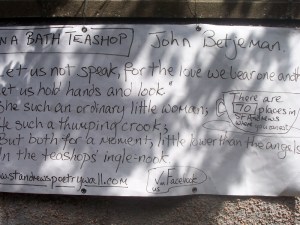 N A BATH TEASHOP John Betjeman.
"Let us not speak, for the love we bear one anoth
Let us hold hands and look"
She such an ordinary little woman;
He such a thumping crook;
But both for a moment, little lower than the angels
In the teashop's ingle-nook
There are
70 places in
St Andrews
w.standrewspoetrywall.com
Facebook
us